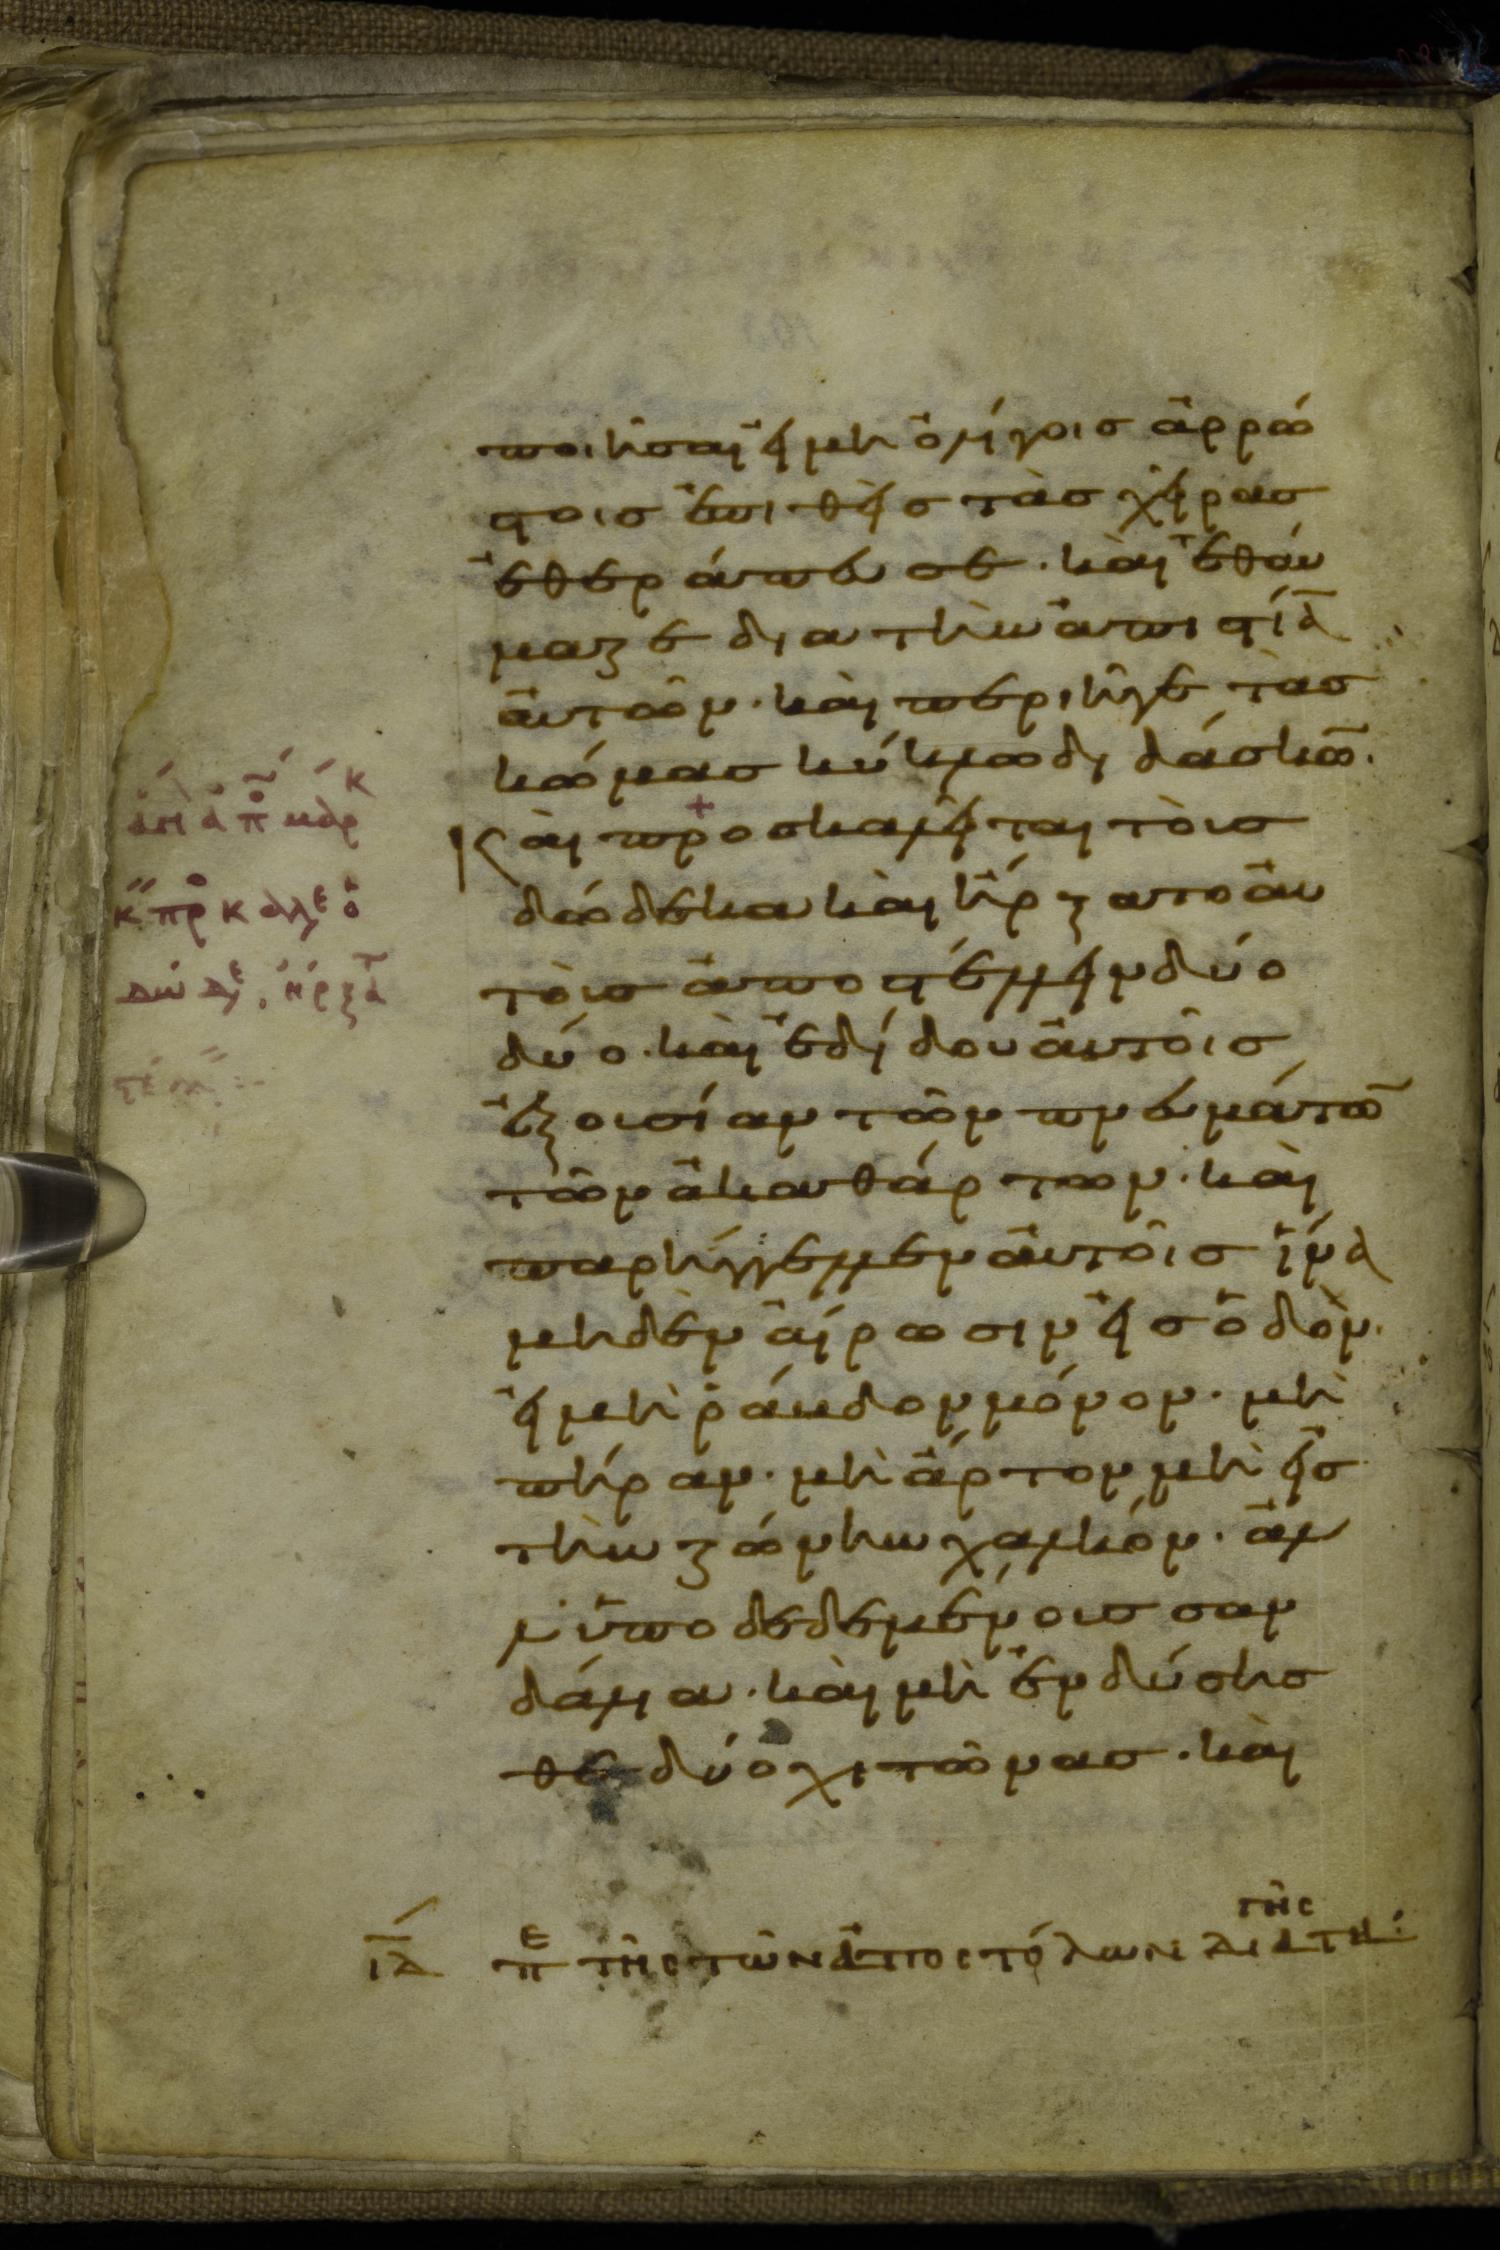 ποιῆσαι εἰ μὴ ὀλίγοις ἀρρώ
στοις ἐπιθεὶς τὰς χεῖρας
ἐθεράπευσε· καὶ ἐθαύ
μαζε δια τὴν ἀπιστίαν
αὐτῶν· καὶ περιῆγε τὰς
κώμας κύκλω διδάσκων·
Καὶ προσκαλεῖται τοὺς
δώδεκα καὶ ἤρξατο αὐ
τοὺς ἀποστέλλειν δύο
δύο· καὶ ἐδίδου αὐτοῖς
ἐξουσίαν τῶν πνευμάτων
τῶν ἀκαθάρτων· καὶ
παρήγγελλεν αὐτοῖς ἵνα
μηδὲν αἴρωσιν εἰς ὁδὸν·
εἰ μὴ ῥάβδον μόνον· μὴ
πήραν· μὴ ἄρτον μὴ εἰς
τὴν ζώνην χαλκόν· ἀλ
λ' ὑποδεδεμένους σαν
δάλια· καὶ μὴ ἐνδύσησ
θε δύο χιτῶνας· καὶ
ΙΔ πε τῆς τῶν ἀποστόλων διατηγῆς: